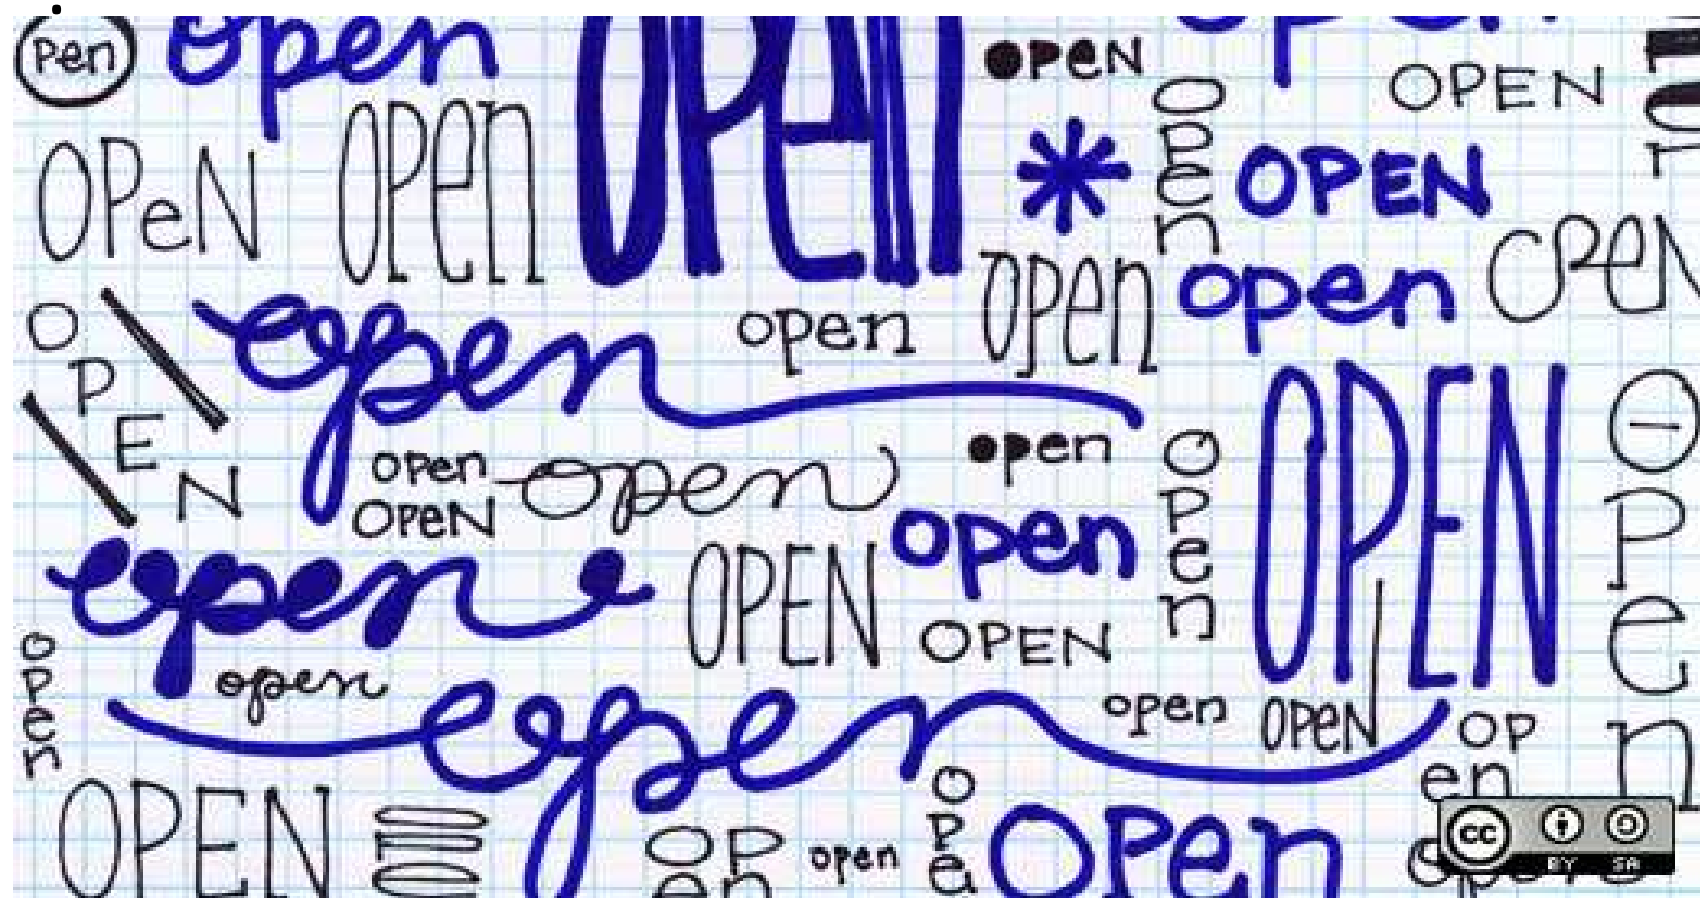 pen
open
open
open
OPEN
OPeN
open
open
OPEN
OPeN
open
open
open
OPEN
open
open
open
open
open
OPeN
open
open
open
OPEN
open
open
OPEN
open
open
open
open
OPeN
OP
en
OPEN
OP
en
open
ope
open
CC
BY SA